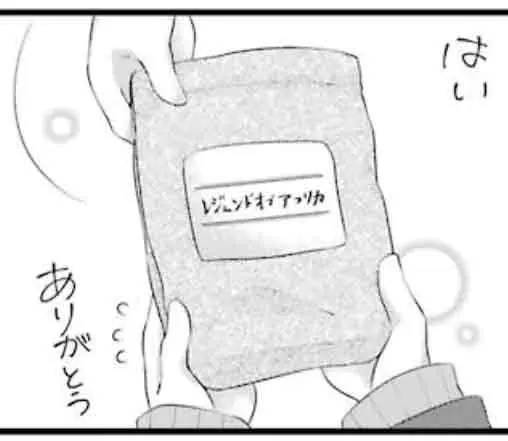 はい
レジェンドオブアフリカ
ありがとう